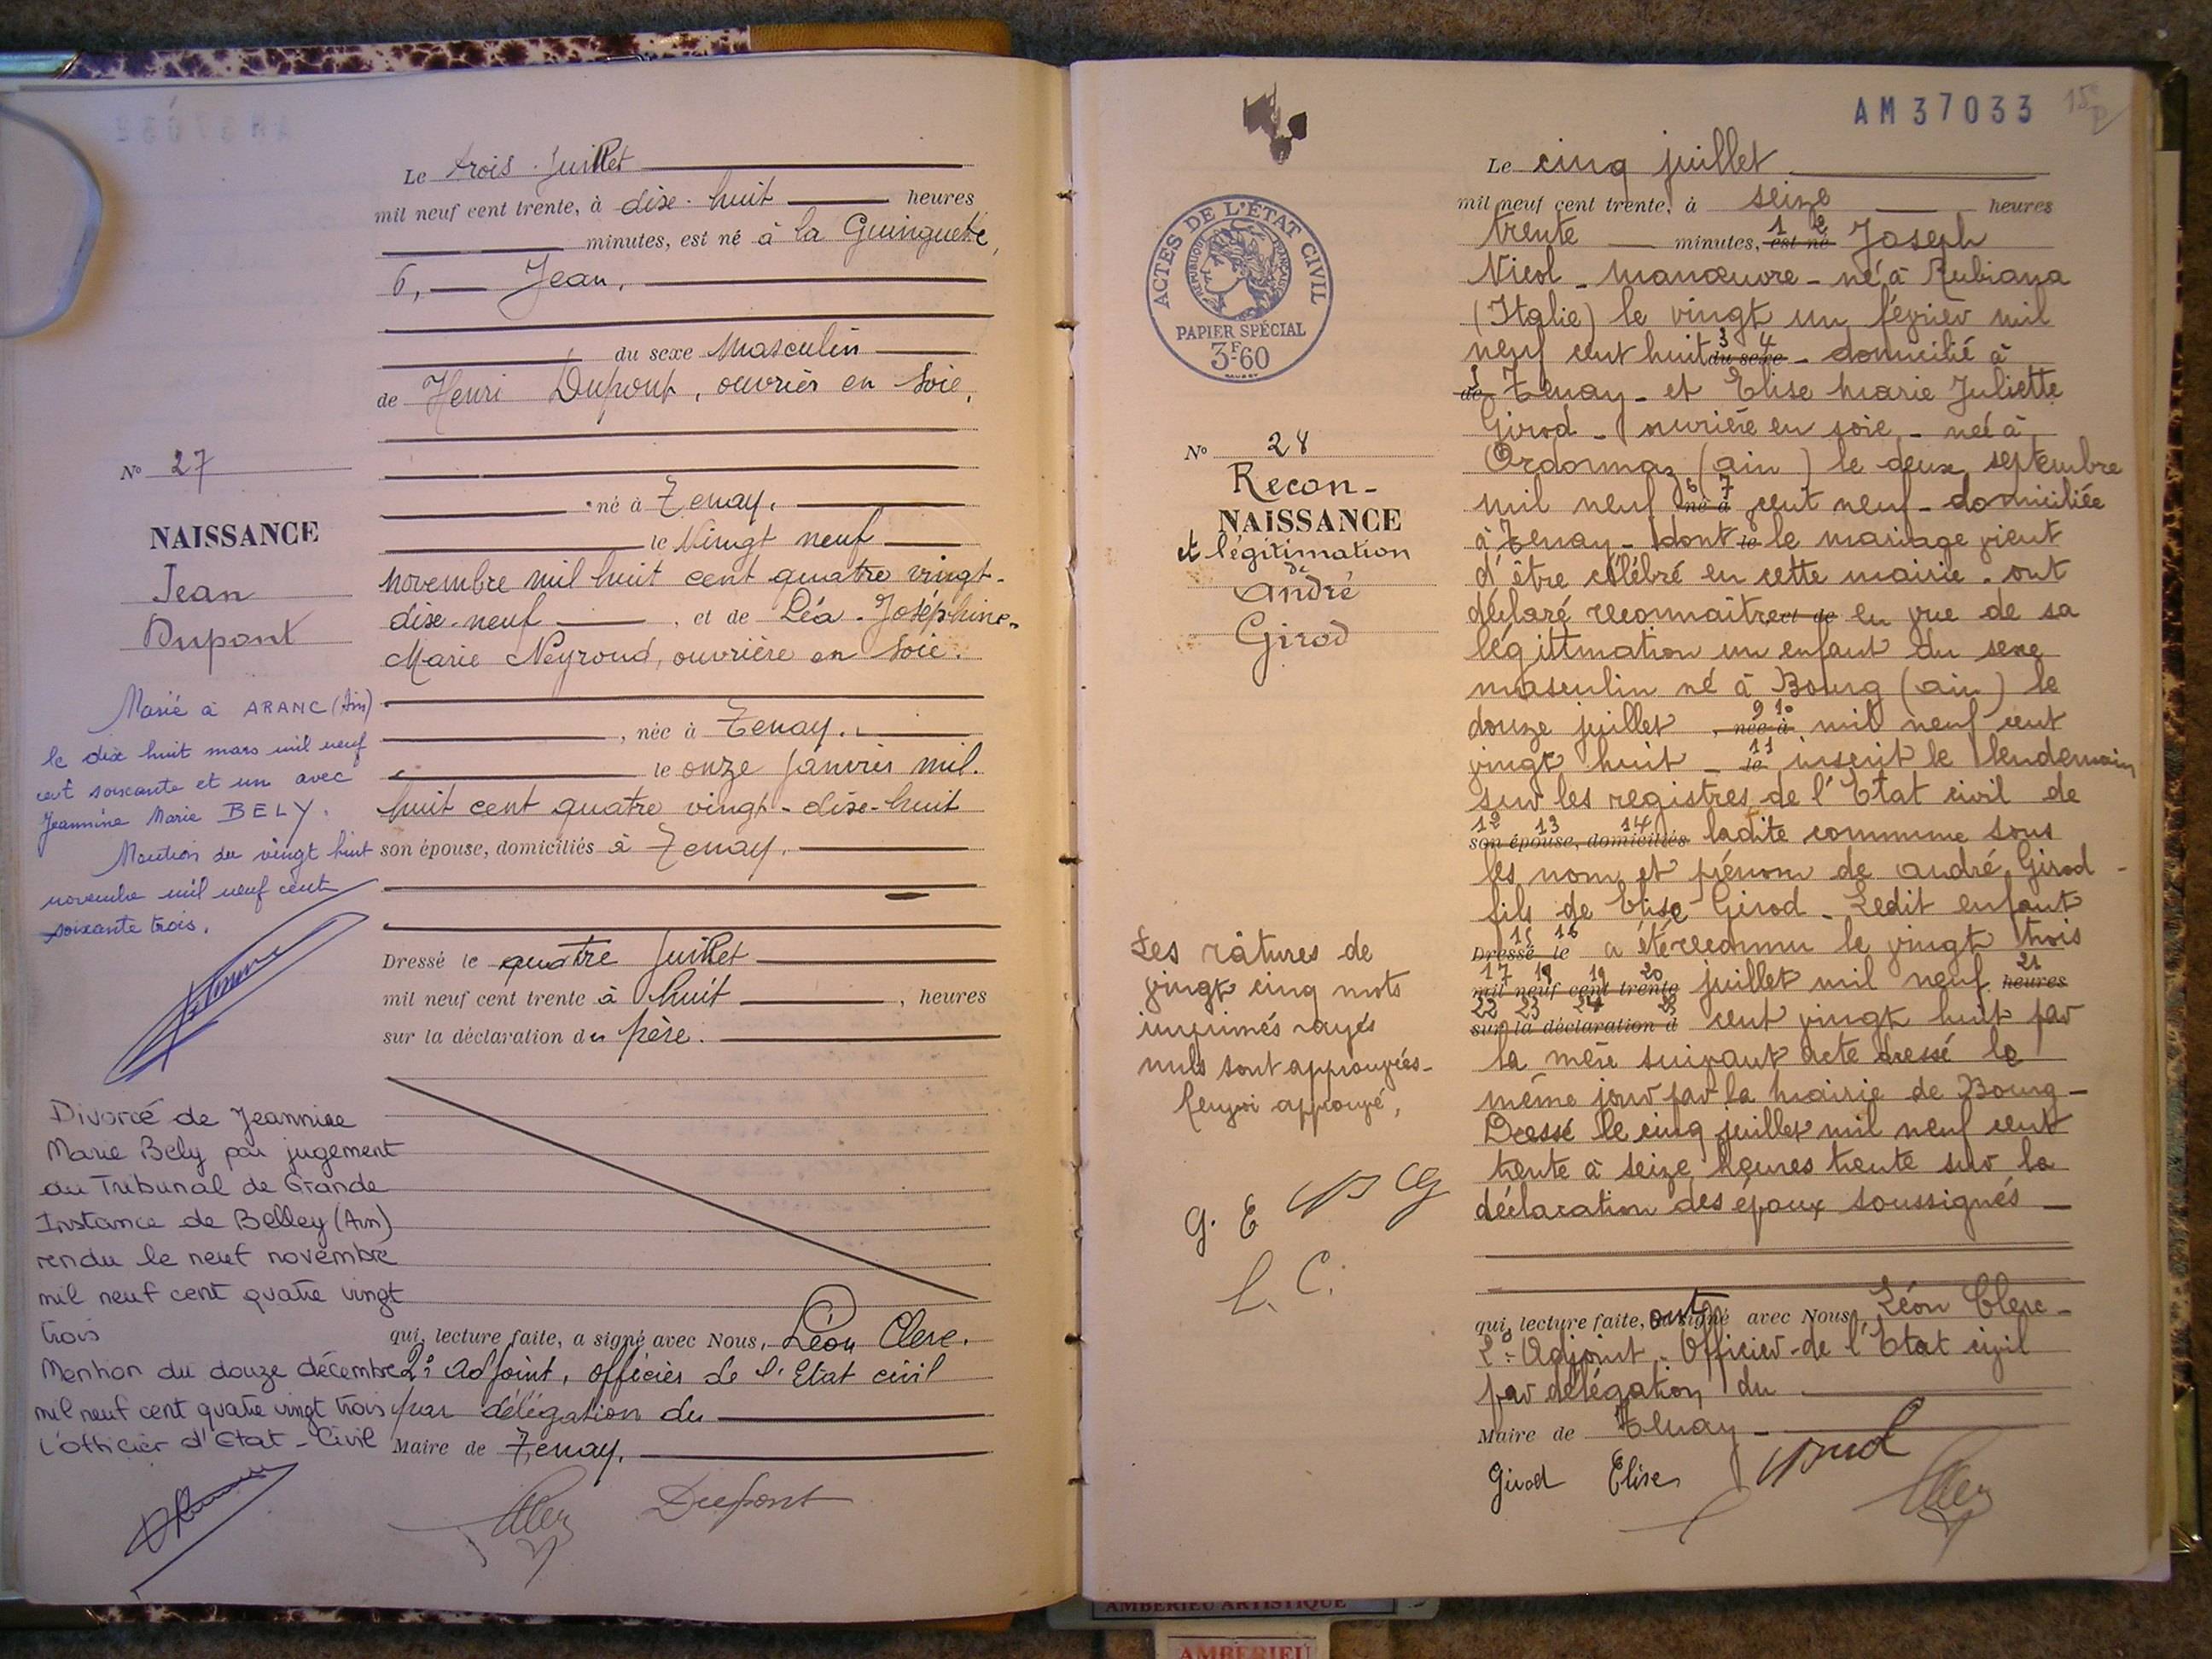 Le trois Juillet
mil neuf cent trente, à dix-huit heures
minutes, est né à la Guinguette,
6, Jean,
du sexe masculin
de Henri Dupont, ouvrier en soie,
né à Tenay,
le Vingt neuf
novembre mil huit cent quatre vingt-
dix-neuf, et de Léa-Joséphine-
Marie Neyroud, ouvrière en soie.
, née à Tenay.
le onze janvier mil.
huit cent quatre vingt-dix-huit
son épouse, domiciliés à Tenay.
Dressé le quatre Juillet
mil neuf cent trente à huit, heures
sur la déclaration du père.
qui, lecture faite, a signé avec Nous, Léon Clerc.
2e Adjoint, officier de l'Etat civil
par délégation du
Maire de Tenay.
Dupont
No 27
NAISSANCE
Jean
Dupont
Marié à ARANC (Ain)
le dix huit mars mil neuf
cent soixante et un avec
Jeannine Marie BELY.
Mention du vingt huit
novembre mil neuf cent
soixante trois.
Divorcé de Jeannine
Marie Bely par jugement
du Tribunal de Grande
Instance de Belley (Ain)
rendu le neuf novembre
mil neuf cent quatre vingt
trois
Mention du douze décembre
mil neuf cent quatre vingt trois
L'officier d'Etat-Civil
AM37033
15
ACTES DE L'ÉTAT CIVIL
RÉPUBLIQUE FRANÇAISE
PAPIER SPÉCIAL
3F60
No 28
Recon-
NAISSANCE
et légitimation
de
André
Girod
Les râtures de
vingt cinq mots
imprimés rayés
nuls sont approuvées-
approuvé,
G. E
L. C.
Le cinq juillet
mil neuf cent trente, à seize heures
1 2
trente minutes, est né Joseph
Nicol - manœuvre - né à Rubiana
(Italie) le vingt un février mil
3 4
neuf cent huit du sexe - domicilié à
5
de Tenay - et Elise Marie Juliette
Girod - ouvrière en soie - née à
Ordonnaz (Ain) le deux septembre
6 7
mil neuf né à cent neuf - domiciliée
8
à Tenay - dont le le mariage vient
d'être célébré en cette mairie. ont
déclaré reconnaitre et de en vue de sa
légittmation un enfant du sexe
masculin né à Bourg (Ain) le
9 10
douze juillet, née à mil neuf cent
11
vingt huit - le inscrit le lendemain
sur les registres de l'Etat civil de
12 13 14
son épouse, domiciliés ladite commune sous
les nom et prénom de André Girod -
fils de Elise Girod - Ledit enfant
15 16
Dressé le a été reconnu le vingt trois
17 18 19 20 21
mil neuf cent trente juillet mil neuf heures
22 23 24 25
sur la déclaration d cent vingt huit par
la mère suivant acte dressé le
même jour par la mairie de Bourg -
Dressé le cinq juillet mil neuf cent
trente à seize heures trente sur la
déclaration des époux soussignés
qui, lecture faite, ont signé avec Nous, Léon Clerc -
2e Adjoint - Officier de l'Etat civil
par délégation du
Maire de Tenay -
Girod Elise
AMBERIEU ARTISTIQUE
AMBERIEU